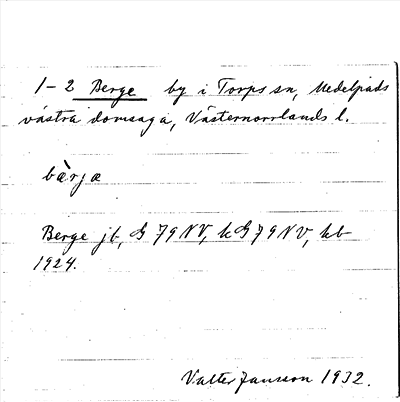 1-2 Berge by i Torps sn, Medelpads
västra domsaga, Västernorrlands l.
bä̀rjæ
Berge jb, G 79 NV, kG 79 NV, kb
1924.
Valter Jansson 1932.